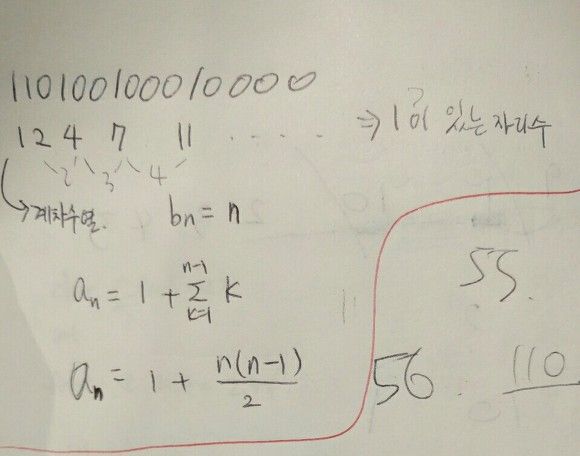 110100100010000
1 2 4 7 11 ····· ⇒ 1이 있는 자리수
2 3 4
→ 계차수열. bn = n
an = 1 + Σ(k=1, n-1) k
an = 1 + n(n-1)/2
55.
56. 110